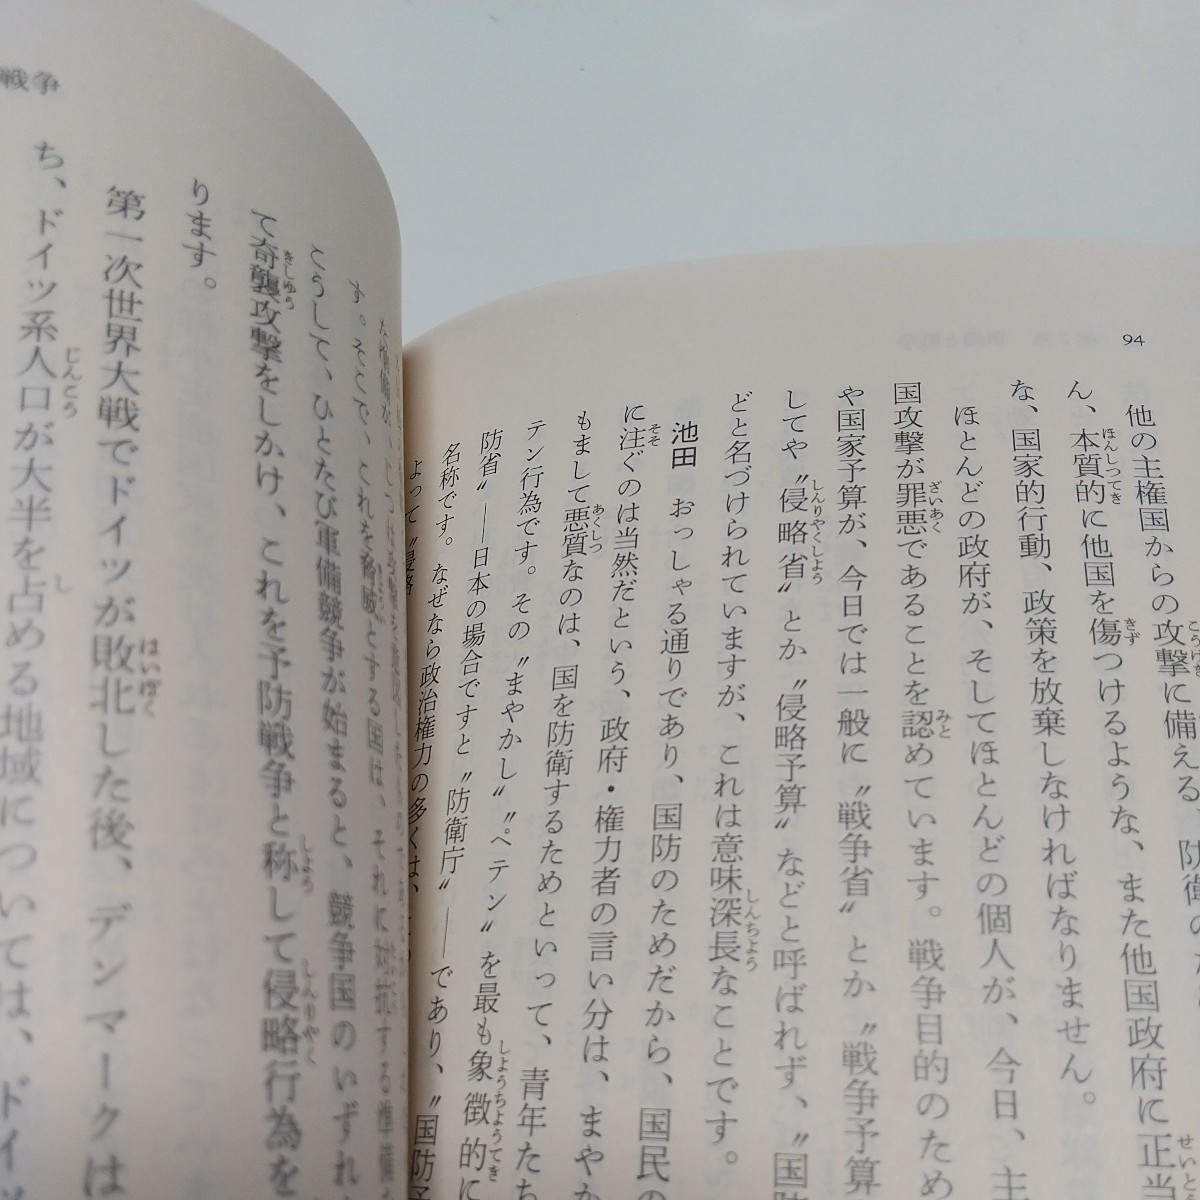 94
他の主権国からの攻撃に備える、防衛のた
ん、本質的に他国を傷つけるような、また他国政府に正当
な、国家的行動、政策を放棄しなければなりません。
ほとんどの政府が、そしてほとんどの個人が、今日、主
国攻撃が罪悪であることを認めています。戦争目的のため
や国家予算が、今日では一般に〝戦争省〟とか〝戦争予算
してや〝侵略省〟とか〝侵略予算〟などと呼ばれず、〝国
どと名づけられていますが、これは意味深長なことです。
池田 おっしゃる通りであり、国防のためだから、国民の
に注ぐのは当然だという、政府・権力者の言い分は、まやか
もまして悪質なのは、国を防衛するためといって、青年たち
テン行為です。その〝まやかし〟〝ペテン〟を最も象徴的に
防省〟―日本の場合ですと〝防衛庁〟―であり、〝国防予
名称です。なぜなら政治権力の多くは、
よって〝侵略
戦争
す。そこで、これを脅威とする国は、それに対抗する準備
こうして、ひとたび軍備競争が始まると、競争国のいずれ
て奇襲攻撃をしかけ、これを予防戦争と称して侵略行為を
ります。
第一次世界大戦でドイツが敗北した後、デンマークは
ち、ドイツ系人口が大半を占める地域については、ドイ